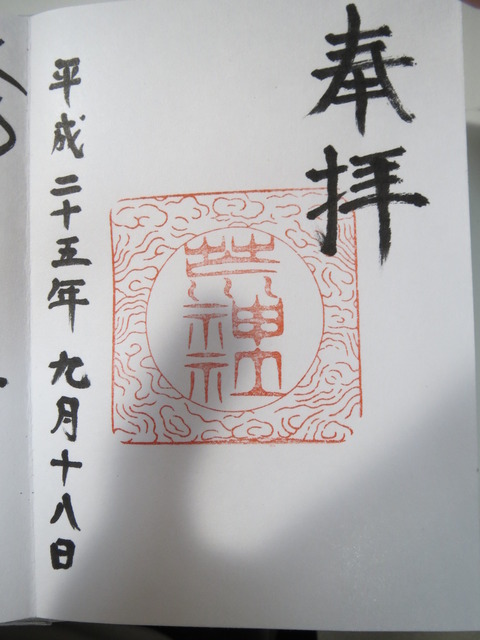 奉拝
神社
平成二十五年九月十八日